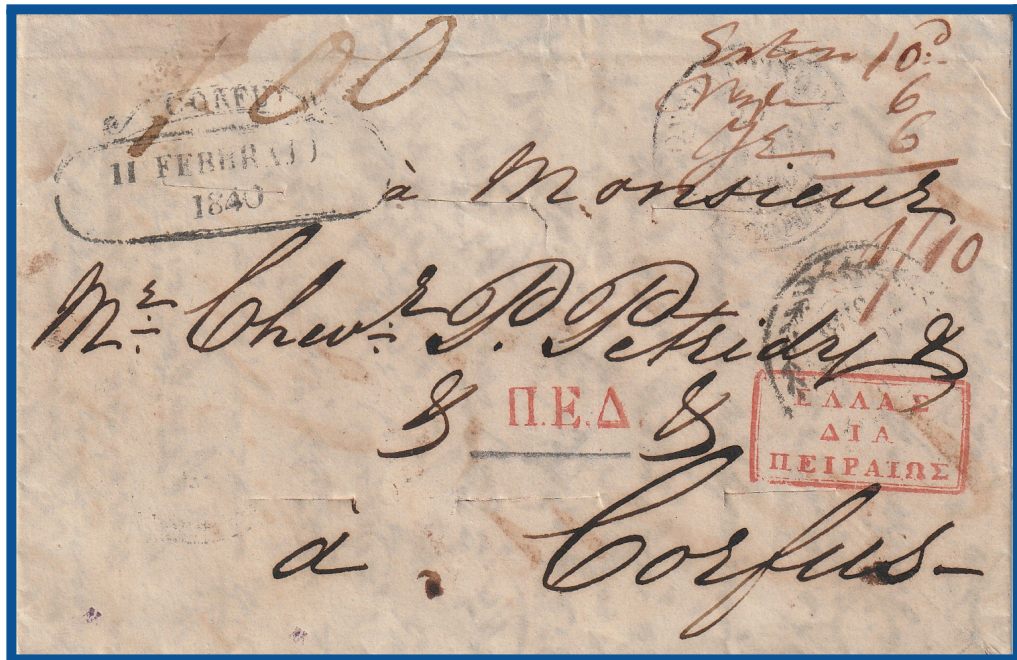 100
CORFU
11 FEBBRAJO
1840
10d
6
6
1/10
à Monsieur
Mr. Chevr. P. Petridy &
& Π.Ε.Δ. &
ΕΛΛΑΣ
ΔΙΑ
ΠΕΙΡΑΙΩΣ
à Corfus